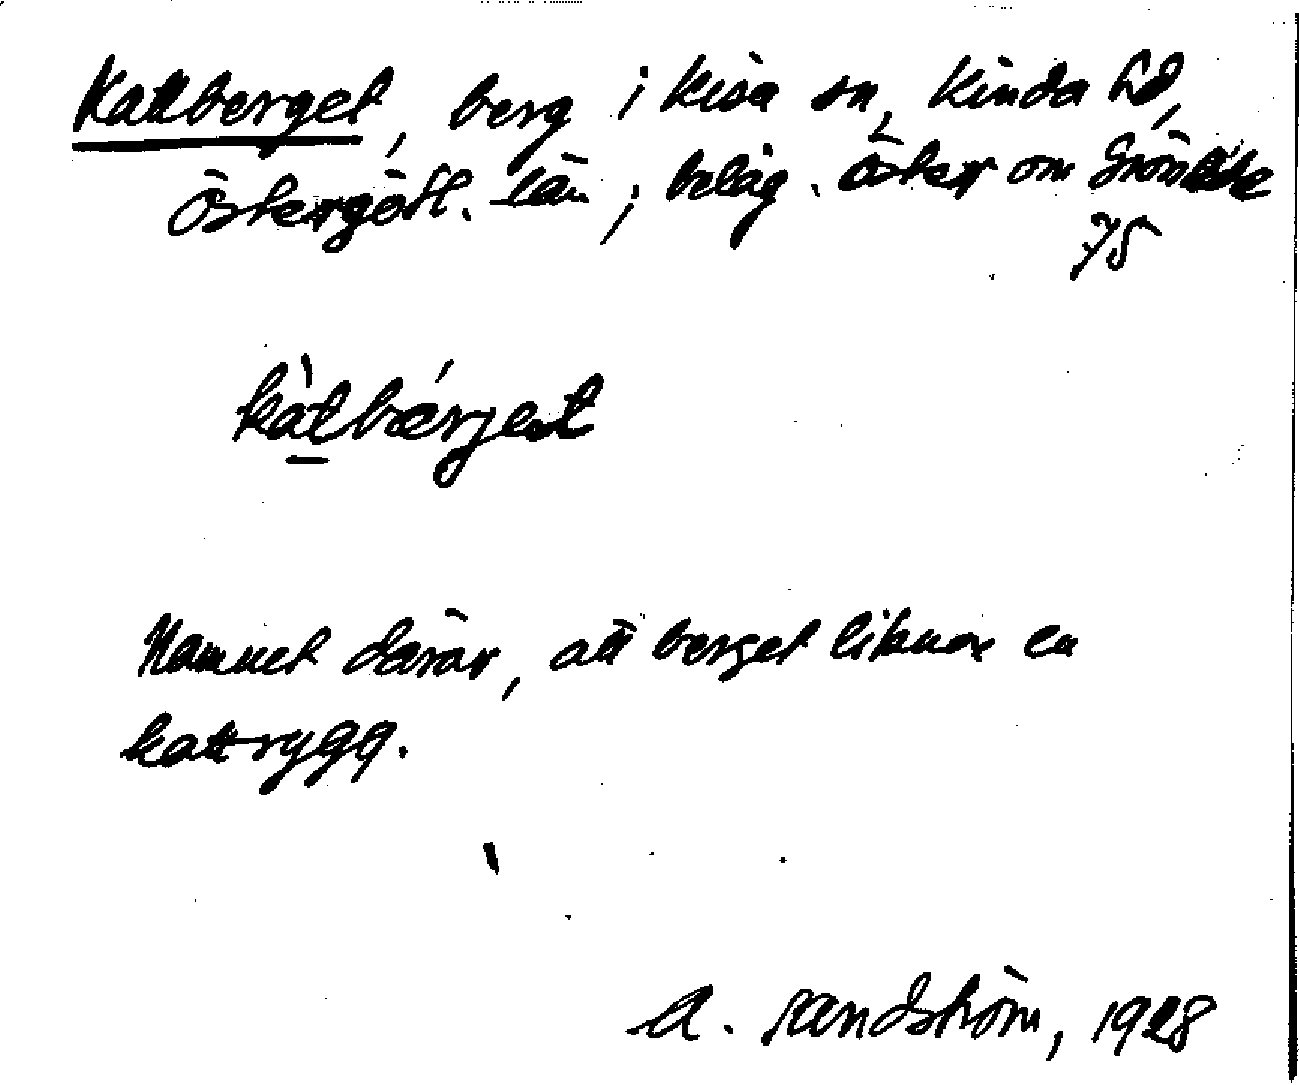 Kattberget, berg i Kisa sn, Kinda hd,
Östergötl. län; beläg. öster om
75
kàtbǽrjet
Namnet därav, att berget liknar en
kattrygg.
A. Sandström, 1928